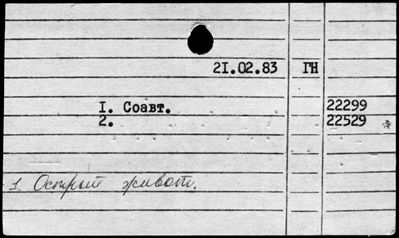 21.02.83 ГН
I. Соавт. 22299
2. 22529
1 Острый живот.